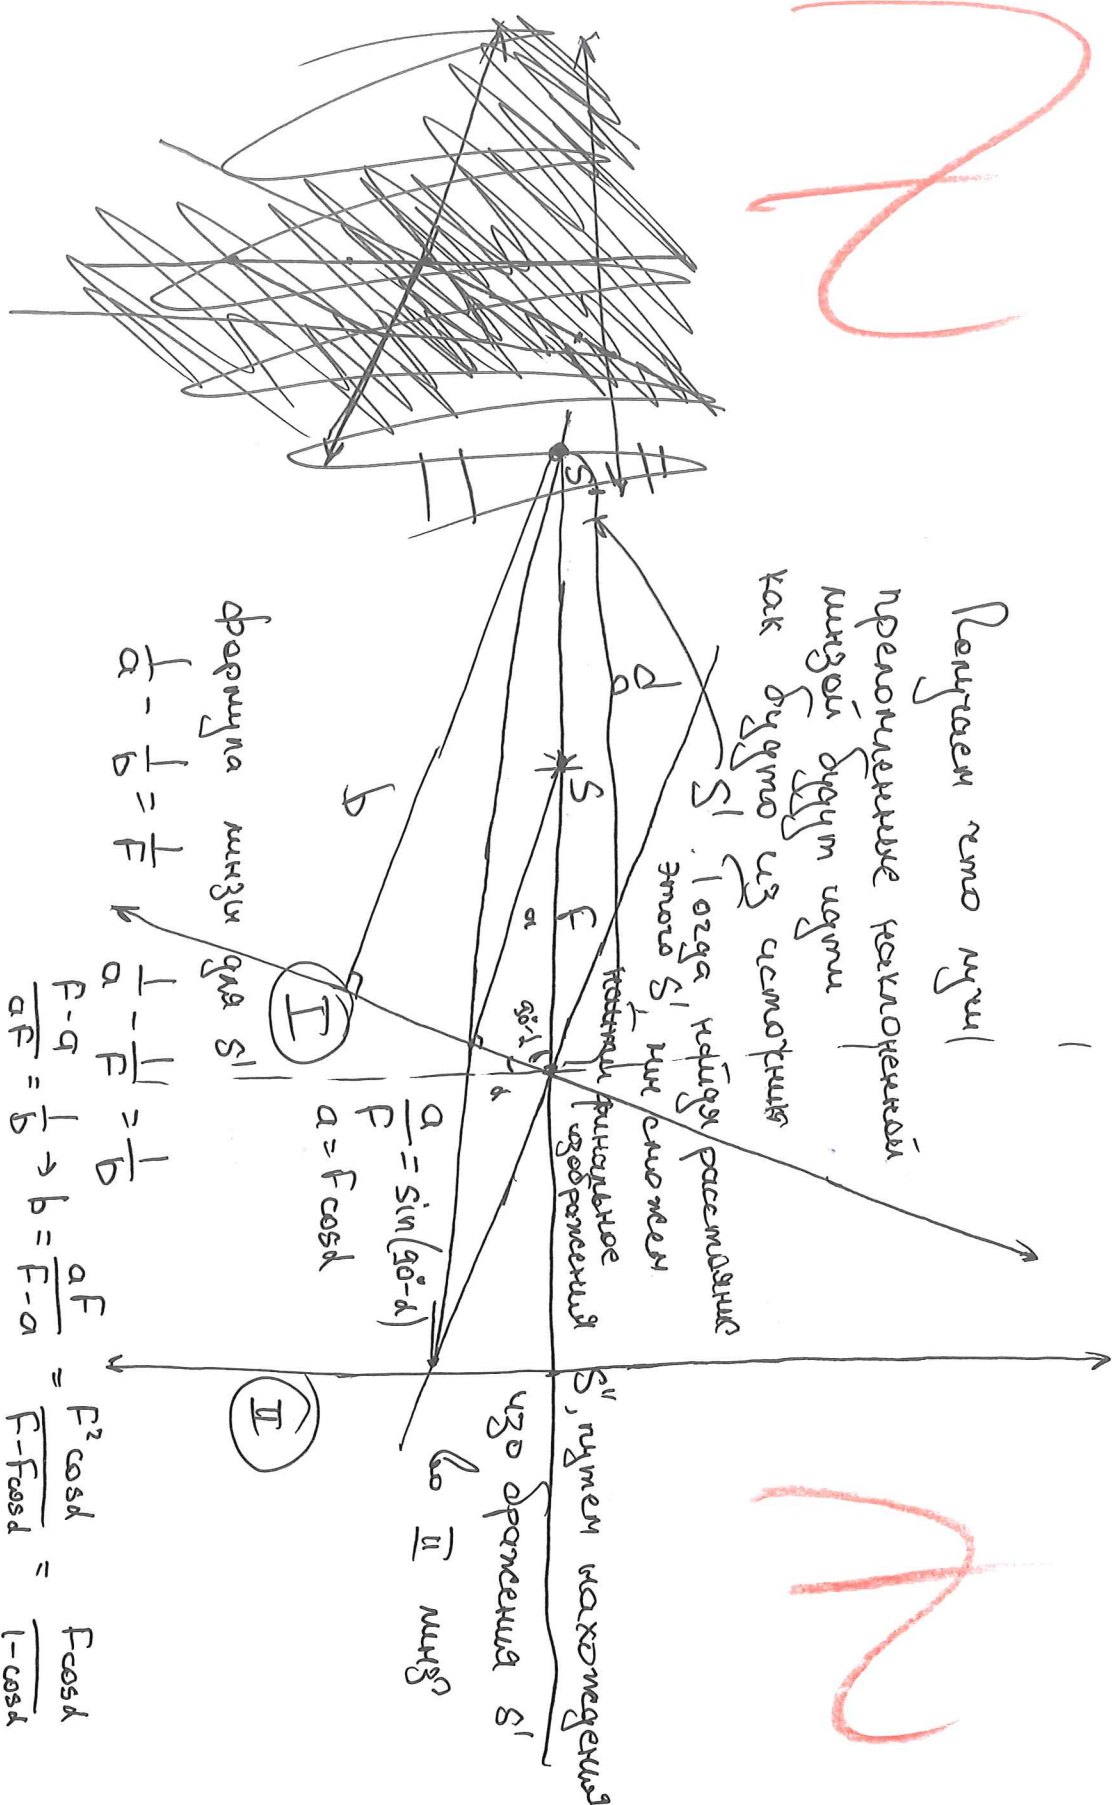 Получаем что лучи
преломленные наклоненной
линзой будут идти
как будто из источника
S'. Тогда найдя расстояние
этого S' мы сможем
найти финальное
изображения
S'', путем нахождения
изображения S'
во II линзе
S'
S
d
F
a
b
90°-α
α
I
II
a/F = sin(90°-α)
a = F cosα
формула линзы для S'
1/a - 1/b = 1/F
1/a - 1/F = 1/b
(F-a)/(aF) = 1/b → b = aF/(F-a) = F² cosα/(F-Fcosα) = Fcosα/(1-cosα)